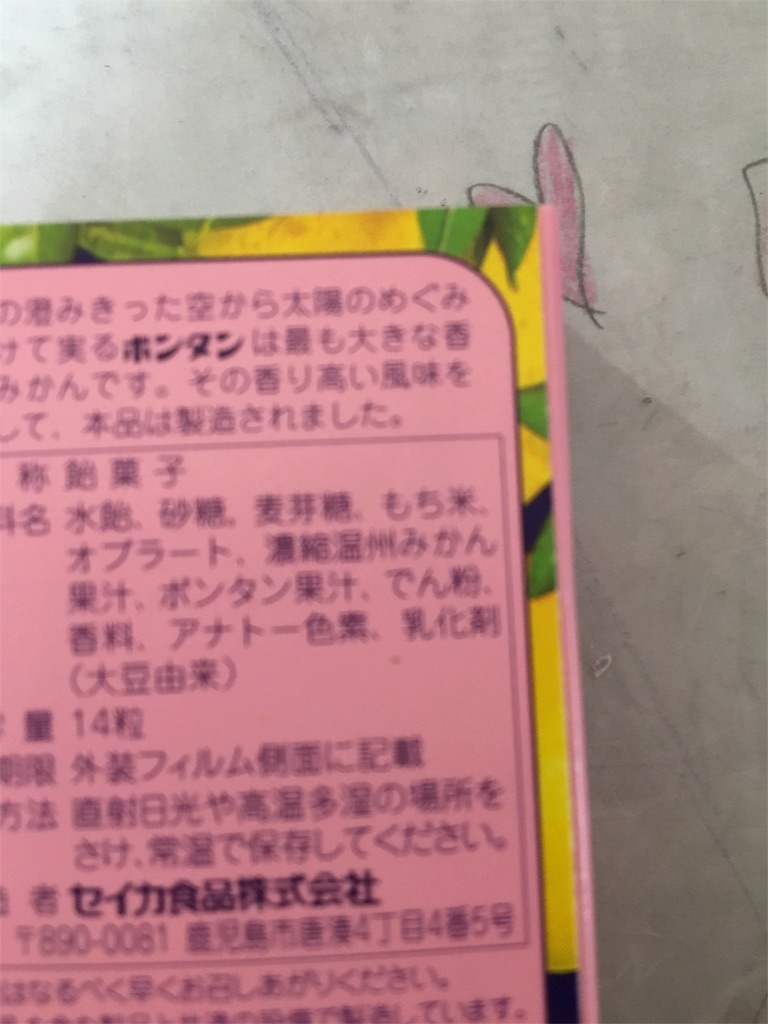 の澄みきった空から太陽のめぐみ
けて実るボンタンは最も大きな香
みかんです。その香り高い風味を
して、本品は製造されました。
称 飴菓子
料名 水飴、砂糖、麦芽糖、もち米、
オブラート、濃縮温州みかん
果汁、ボンタン果汁、でん粉、
香料、アナトー色素、乳化剤
（大豆由来）
量 14粒
期限 外装フィルム側面に記載
方法 直射日光や高温多湿の場所を
さけ、常温で保存してください。
者 セイカ食品株式会社
〒890-0081 鹿児島市唐湊4丁目4番5号
はなるべく早くお召しあがりください。
の設備で製造しています。